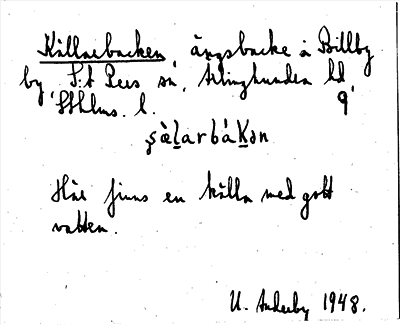 Källarbacken, ängsbacke å Billby
by, S:t Pers sn, Ärlinghundra hd,
Sthlms. l. 9
şæ̀ḻarbáḵən
Här finns en källa med gott
vatten.
U. Anderby 1948.